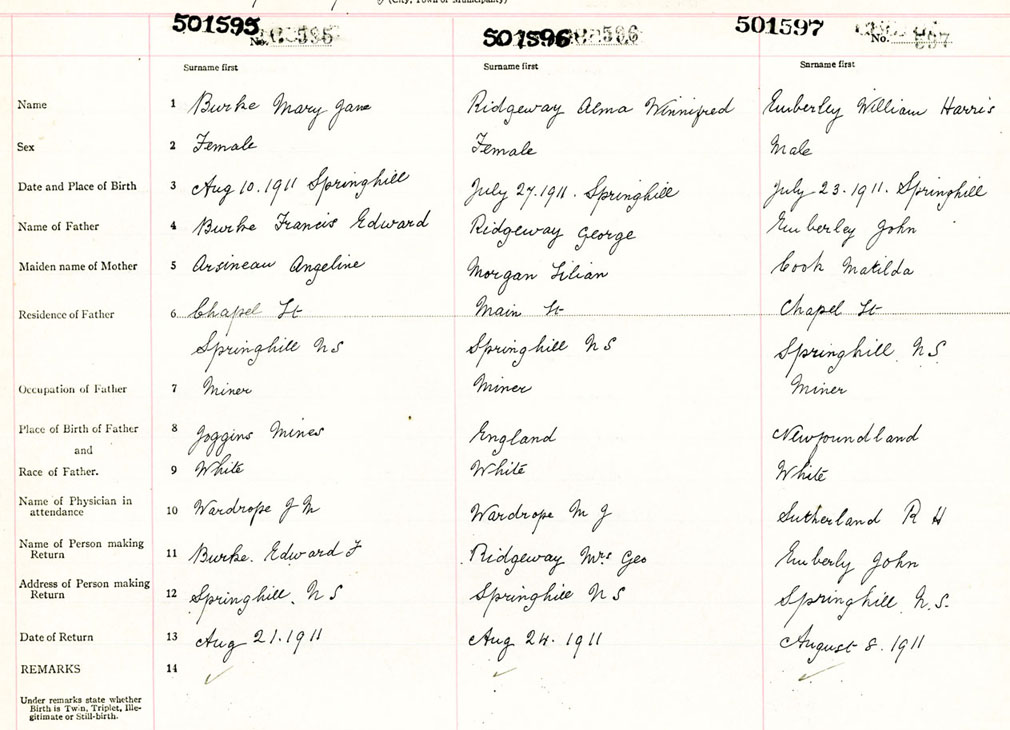 (City, Town or Municipality)
501595 No. 501596 501597 No.
Surname first Surname first Surname first
Name 1 Burke Mary Jane Ridgeway Alma Winnifred Emberley William Harris
Sex 2 Female Female Male
Date and Place of Birth 3 Aug 10. 1911 Springhill July 27. 1911. Springhill July 23. 1911. Springhill
Name of Father 4 Burke Francis Edward Ridgeway George Emberley John
Maiden name of Mother 5 Arsineau Angeline Morgan Lilian Cook Matilda
Residence of Father 6 Chapel St Main St Chapel St
Springhill N S Springhill N S Springhill N.S.
Occupation of Father 7 Miner Miner Miner
Place of Birth of Father 8 Joggins Mines England Newfoundland
and
Race of Father. 9 White White White
Name of Physician in
attendance 10 Wardrope J M Wardrope M J Sutherland R H
Name of Person making
Return 11 Burke. Edward F Ridgeway Mrs Geo Emberly John
Address of Person making
Return 12 Springhill. N S Springhill N S Springhill N.S.
Date of Return 13 Aug 21. 1911 Aug 24. 1911 August 8. 1911
REMARKS 14
Under remarks state whether
Birth is Twin, Triplet, Ille-
gitimate or Still-birth.